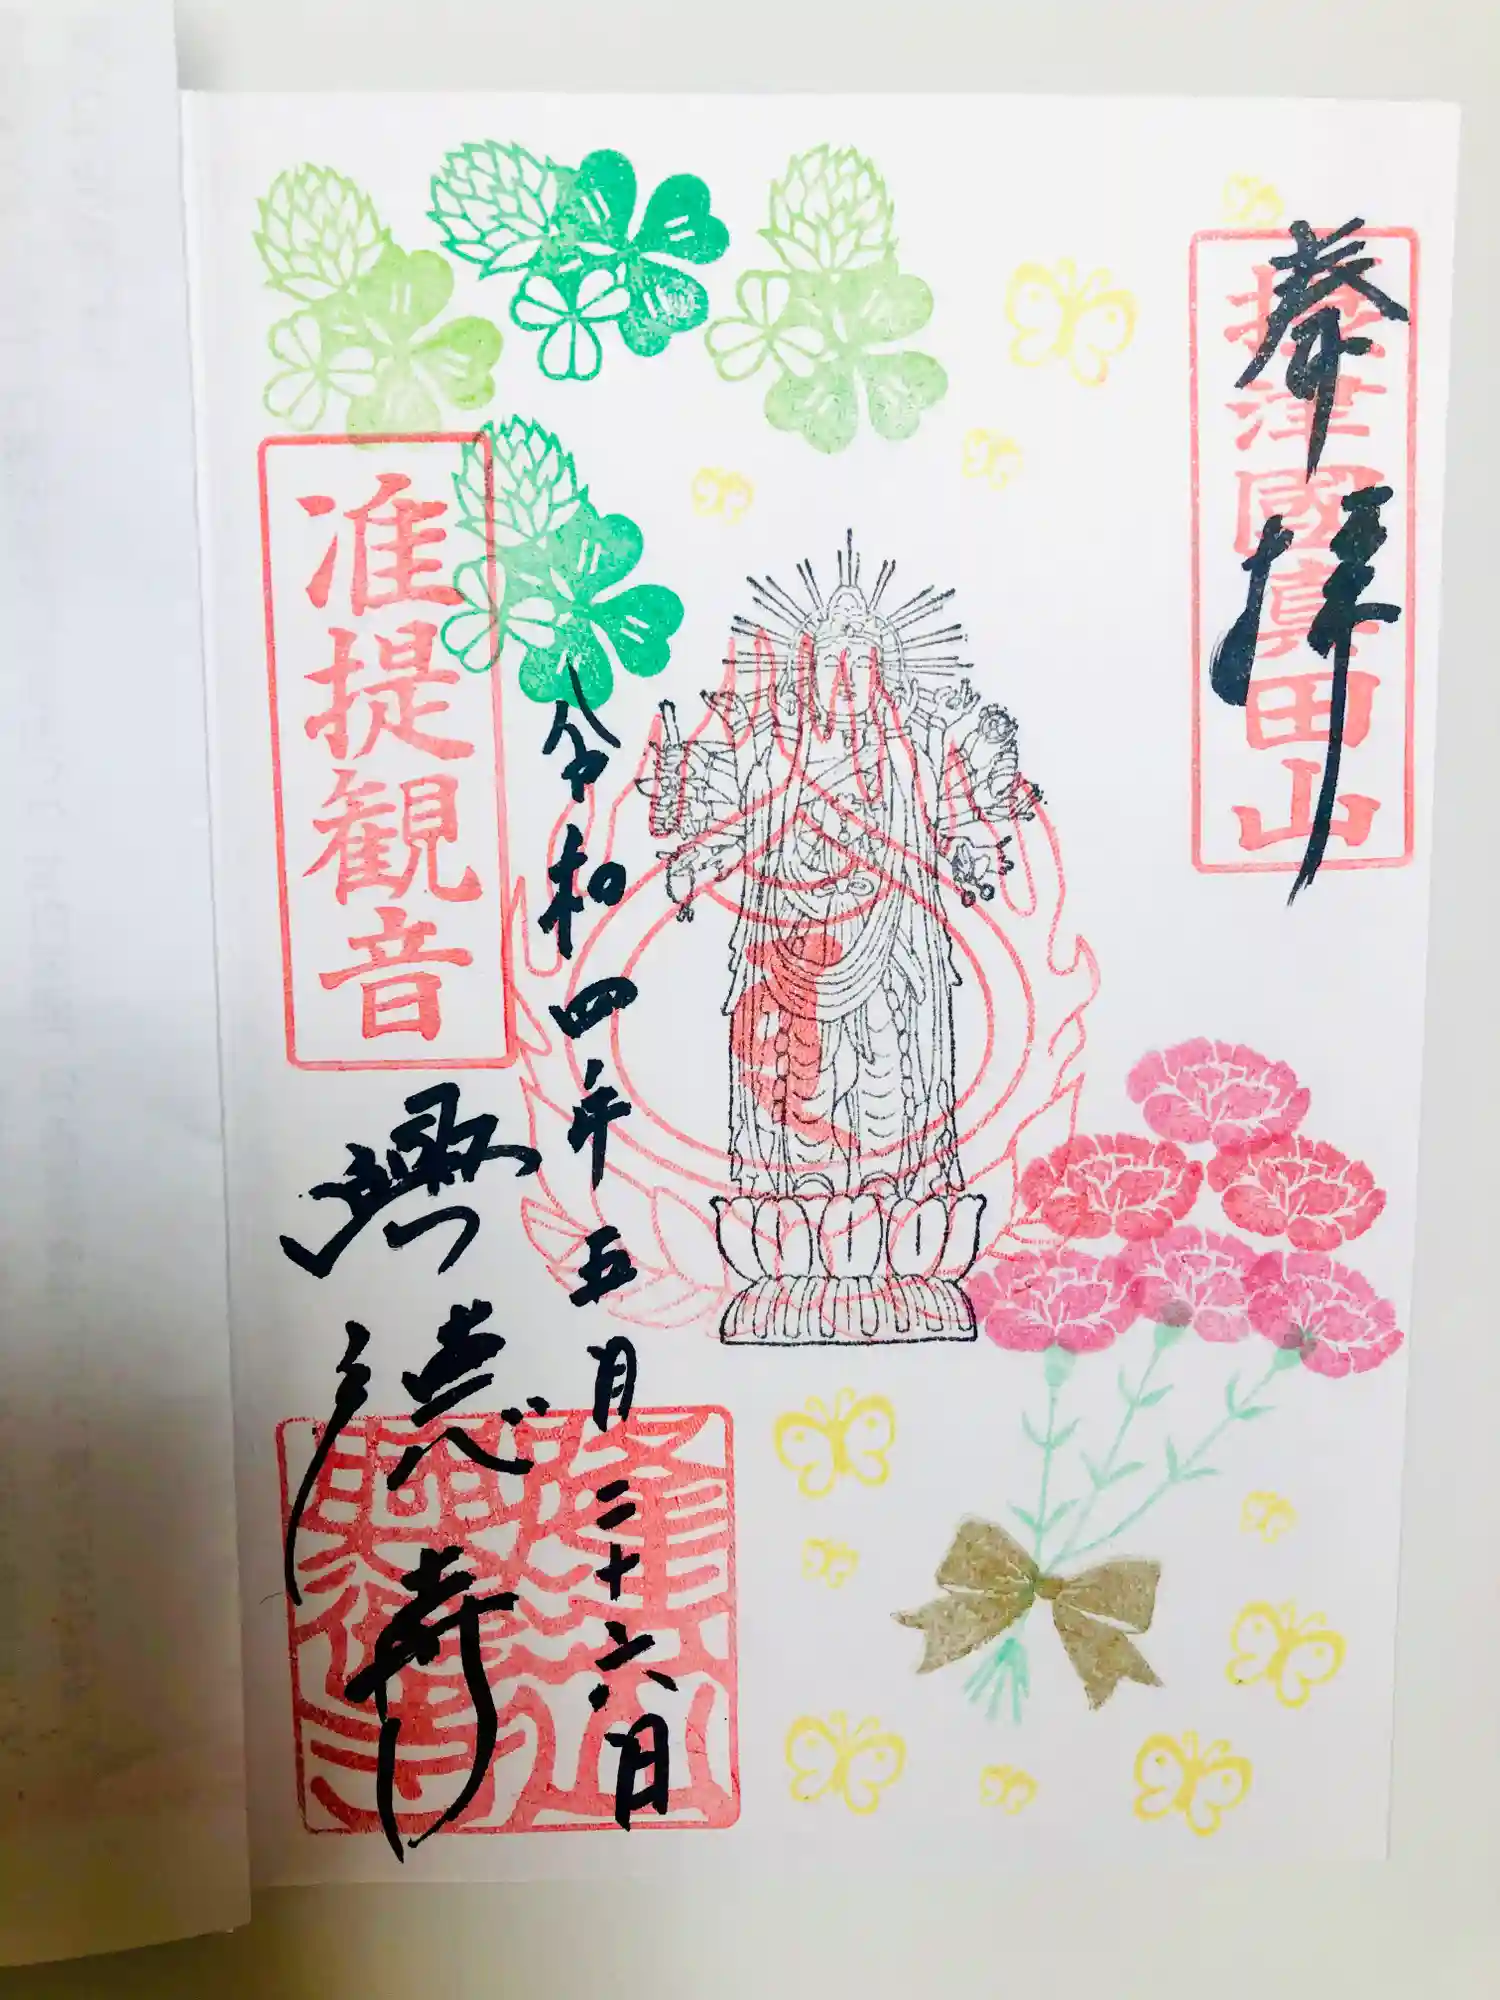 奉拝
摂津國真田山
令和四年五月二十六日
准提観音
興德寺